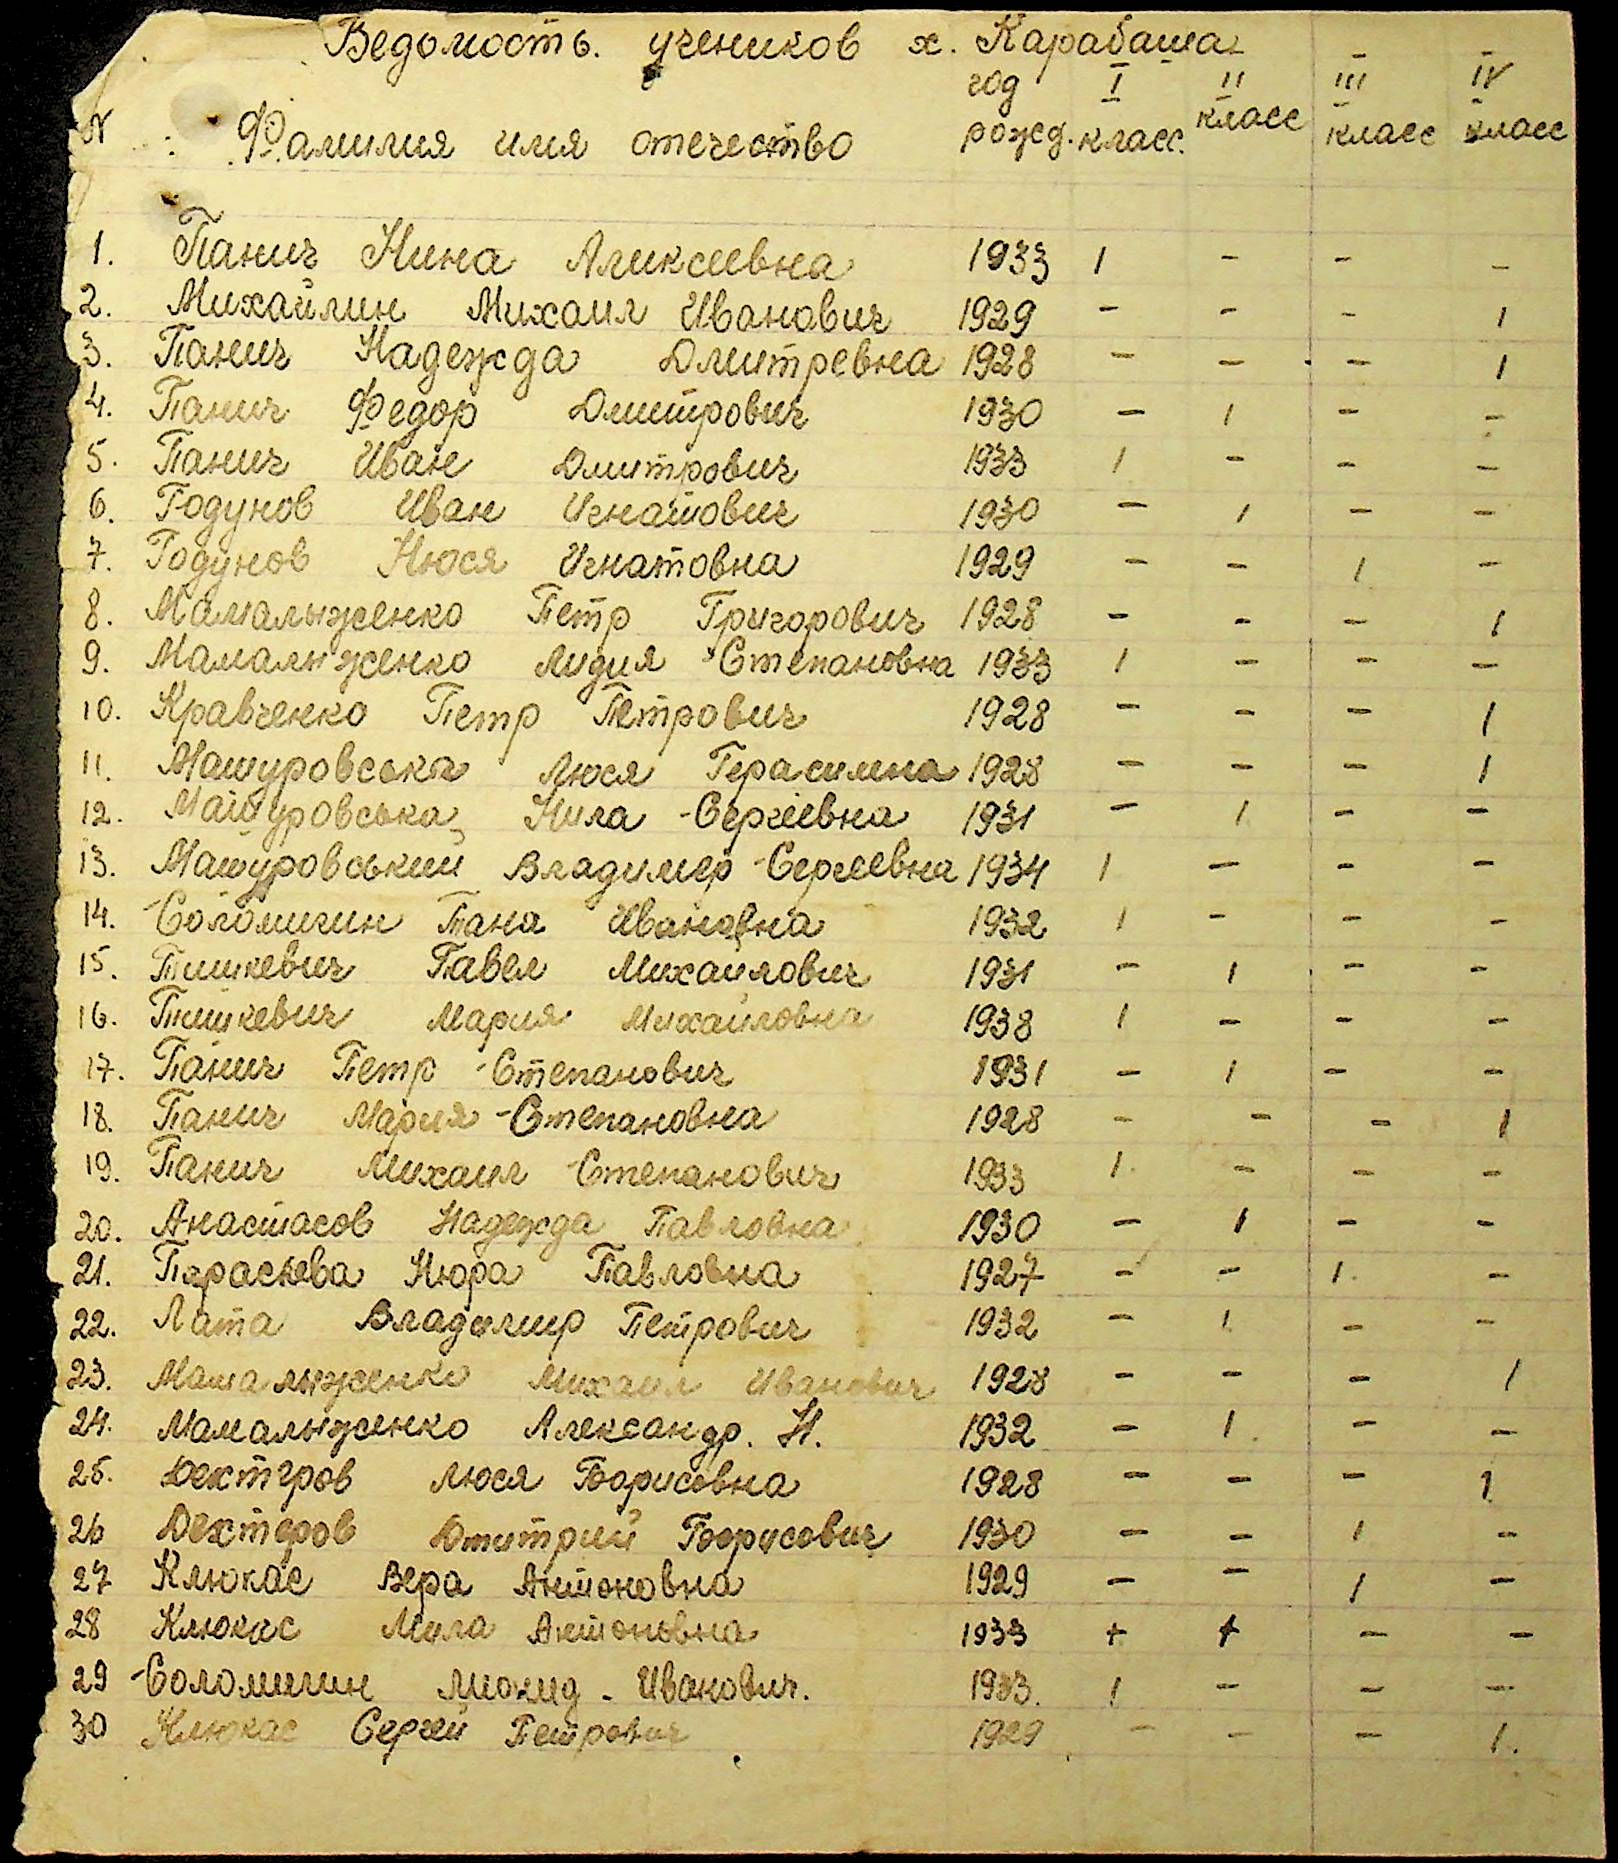 Ведомость. учеников х. Карабаша
N : Фамилия имя отечество год рожд. I класс. II класс III класс IV класс
1. Панич Нина Аликсеевна 1933 1 - - -
2. Михайлин Михаил Иванович 1929 - - - 1
3. Панич Надежда Дмитревна 1928 - - - 1
4. Панич Федор Дмитрович 1930 - 1 - -
5. Панич Иван Дмитрович 1933 1 - - -
6. Годунов Иван Игнатович 1930 - 1 - -
7. Годунов Нюся Игнатовна 1929 - - 1 -
8. Мамалыженко Петр Григорович 1928 - - - 1
9. Мамалыженко Лидия Степановна 1933 1 - - -
10. Кравченко Петр Петрович 1928 - - - 1
11. Машуровська Люся Герасимна 1928 - - - 1
12. Машуровська Нила Сергеевна 1931 - 1 - -
13. Машуровський Владимер Сергеевна 1934 1 - - -
14. Соломигин Тана Ивановна 1932 1 - - -
15. Тишкевич Павел Михайлович 1931 - 1 - -
16. Тишкевич Мария Михайловна 1938 1 - - -
17. Панич Петр Степанович 1931 - 1 - -
18. Панич Мария Степановна 1928 - - - 1
19. Панич Михаил Степанович 1933 1. - - -
20. Анастасов Надежда Павловна 1930 - 1 - -
21. Нюра Павловна 1927 - - 1. -
22. Лата Владимир Петрович 1932 - 1. - -
23. Мамалыженко Михаил Иванович 1928 - - - 1
24. Мамалыженко Александр. И. 1932 - 1. - -
25. Дехтгров Люся Борисовна 1928 - - - 1.
26 Дехтеров Дмитрий Борисович 1930 - - 1 -
27 Клюкас Вера Антоновна 1929 - - 1 -
28 Клюкас Мила Антоновна 1933 + + - -
29 Соломигин Лионид - Иванович. 1933. 1 - - -
30 Клюкас Сергей Петрович 1929 - - - 1.